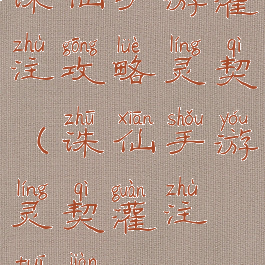 诛仙手游灌
zhù gōng lüè líng qì
注攻略灵契
zhū xiān shǒu yóu
（诛仙手游
líng qì guàn zhù
灵契灌注
tuī jiàn